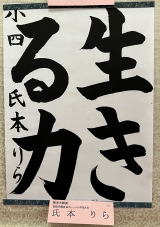 生き
る力
小四
氏本りら
氏本 りら